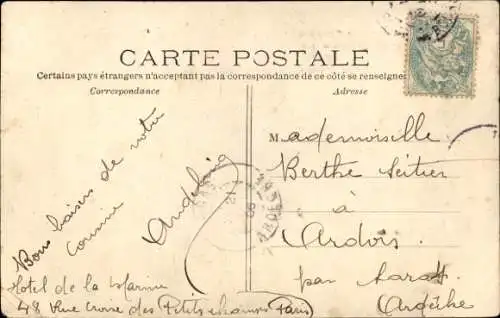 CARTE POSTALE
Certains pays étrangers n'acceptant pas la correspondance de ce côté se renseigner
Correspondance
Adresse
Bons baisers de notre
Mademoiselle
Berthe
à
Ardois
par
Ardèche
Hotel de la Marine
48 Rue Croix des Petits champs Paris